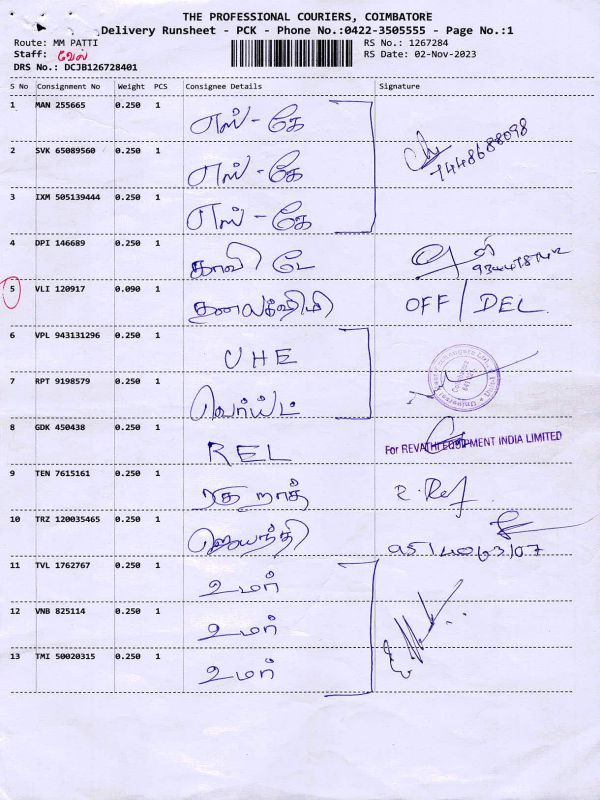 THE PROFESSIONAL COURIERS, COIMBATORE
Delivery Runsheet - PCK - Phone No.:0422-3505555 - Page No.:1
Route: MM PATTI RS No.: 1267284
Staff: வேல் RS Date: 02-Nov-2023
DRS No.: DCJB126728401
S No Consignment No Weight PCS Consignee Details Signature
1 MAN 255665 0.250 1 எஸ் - கே
2 SVK 65089560 0.250 1 எஸ் - கே 7448688098
3 IXM 505139444 0.250 1 எஸ் - கே
4 DPI 146689 0.250 1 காவி டே
5 VLI 120917 0.090 1 தனலக்ஷ்மி OFF/DEL
6 VPL 943131296 0.250 1 UHE
7 RPT 9198579 0.250 1
8 GDK 450438 0.250 1 REL For REVATHI EQUIPMENT INDIA LIMITED
9 TEN 7615161 0.250 1 ரகு நாத்
10 TRZ 120035465 0.250 1 ஜெயந்தி 9514063107
11 TVL 1762767 0.250 1 உமர்
12 VNB 825114 0.250 1 உமர்
13 TMI 50020315 0.250 1 உமர்